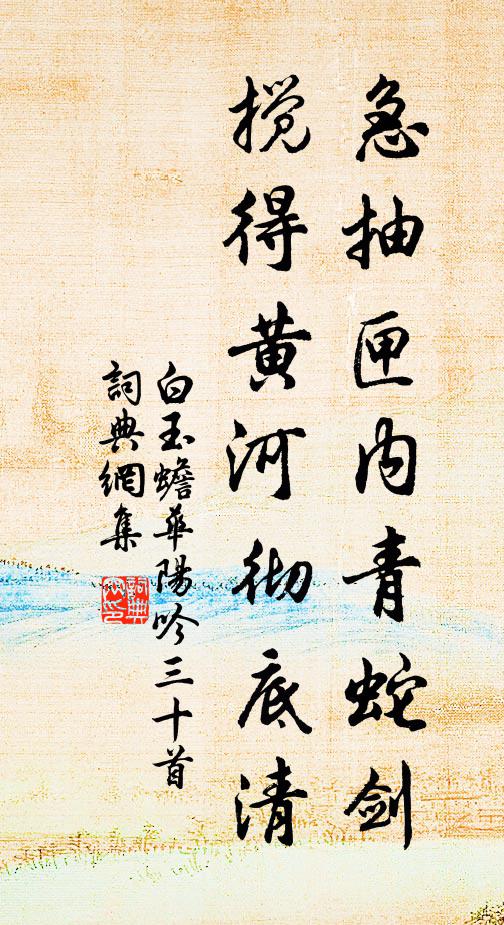 急抽匣内青蛇剑
搅得黄河彻底清
白玉蟾華陽吟三十首
詞典網集